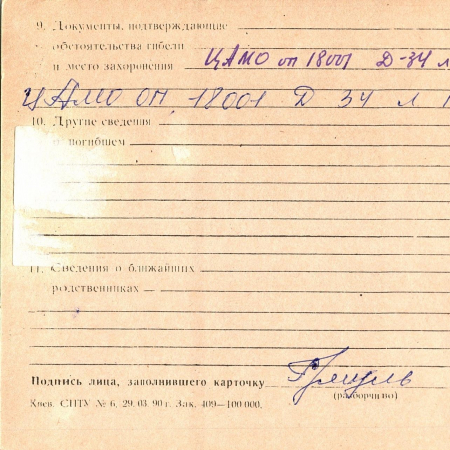 9. Документы, подтверждающие
обстоятельства гибели
и место захоронения ЦАМО оп 18001 Д-34 л
ЦАМО ОП. 18001 Д 34 Л 1
10. Другие сведения
о погибшем
11. Сведения о ближайших
родственниках
Подпись лица, заполнившего карточку
(разборчиво)
Киев. СПТУ № 6, 29. 03. 90 г. Зак. 409—100 000.